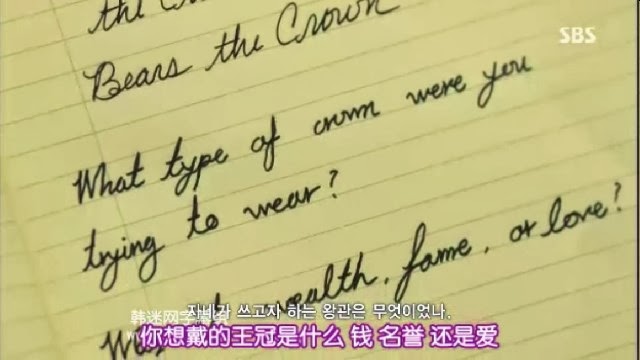 the
Bears the Crown
SBS
What type of crown were you
trying to wear?
wealth, fame, or love?
韩迷网字幕
자네가 쓰고자 하는 왕관은 무엇이었나.
你想戴的王冠是什么 钱 名誉 还是爱